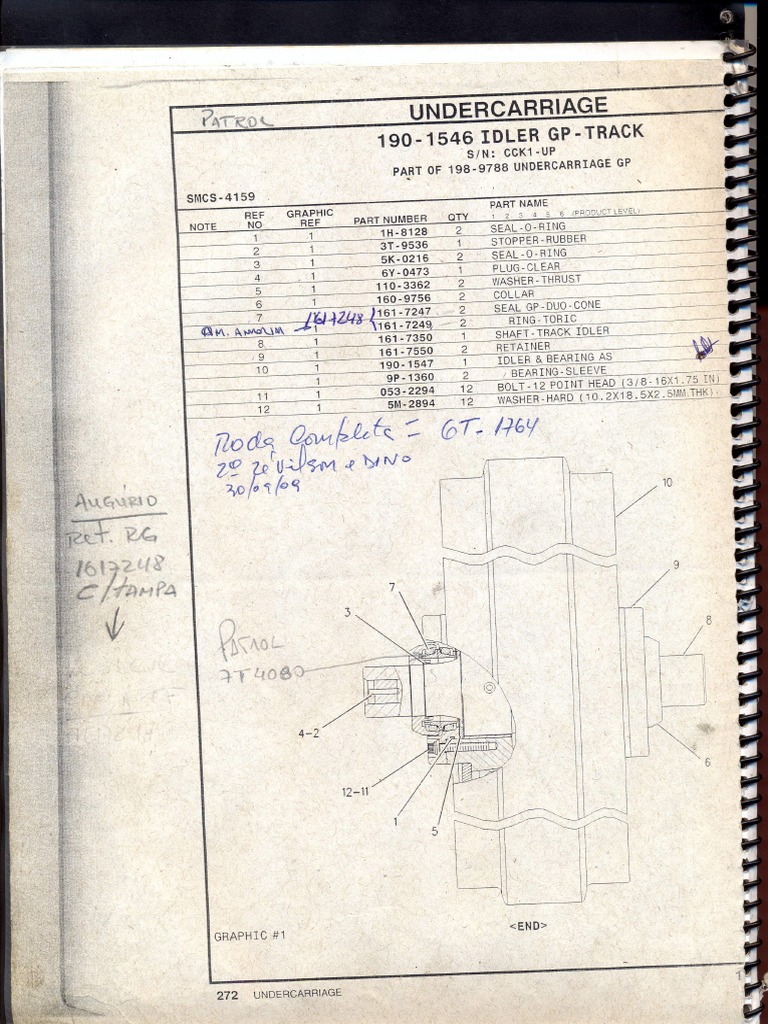 UNDERCARRIAGE
PATROL
190-1546 IDLER GP-TRACK
S/N: CCK1-UP
PART OF 198-9788 UNDERCARRIAGE GP
SMCS-4159
NOTE REF NO GRAPHIC REF PART NUMBER QTY PART NAME
1 2 3 4 5 6 (PRODUCT LEVEL)
1 1 1H-8128 2 SEAL-O-RING
2 1 3T-9536 1 STOPPER-RUBBER
3 1 5K-0216 2 SEAL-O-RING
4 1 6Y-0473 1 PLUG-CLEAR
5 1 110-3362 2 WASHER-THRUST
6 1 160-9756 2 COLLAR
7 1617248 161-7247 2 SEAL GP-DUO-CONE
M. AMORIM 1 161-7249 2 RING-TORIC
8 1 161-7350 1 SHAFT-TRACK IDLER
9 1 161-7550 2 RETAINER
10 1 190-1547 1 IDLER & BEARING AS
1 9P-1360 2 BEARING-SLEEVE
11 1 053-2294 12 BOLT-12 POINT HEAD (3/8-16X1.75 IN)
12 1 5M-2894 12 WASHER-HARD (10.2X18.5X2.5MM THK)
Roda Completa = 6T-1764
2º Zé Vilson e DINO
30/09/09
AUGÚRIO
Ret. RG
1617248
C/TAMPA
PATROL
7T4080
10
9
8
7
3
4-2
6
12-11
1
5
<END>
GRAPHIC #1
272 UNDERCARRIAGE